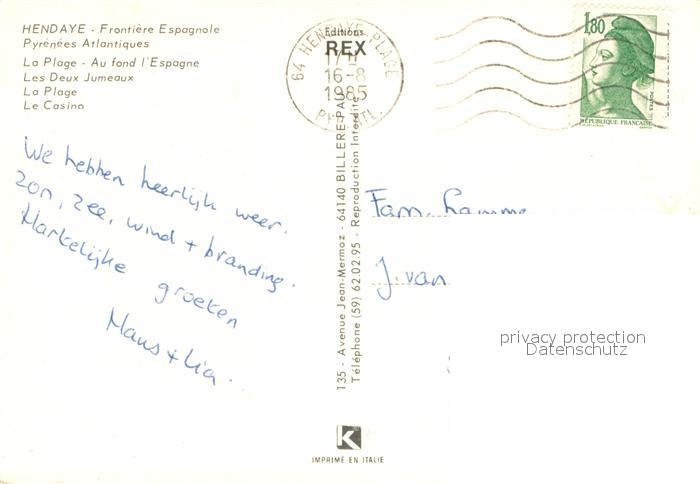 HENDAYE - Frontière Espagnole
Pyrénées Atlantiques
La Plage - Au fond l'Espagne
Les Deux Jumeaux
La Plage
Le Casino
We hebben heerlijk weer.
Zon, zee, wind + branding.
Hartelijke groeten
Hans + Lia.
Editions
REX
64 HENDAYE-PLAGE
17H
16-8
1985
PYR. ATL.
135 - Avenue Jean-Mermoz - 64140 BILLERE-PAU
Téléphone (59) 62.02.95 - Reproduction Interdite
1,80
POSTES
RÉPUBLIQUE FRANÇAISE
Fam.
J. van
privacy protection
Datenschutz
K
IMPRIMÉ EN ITALIE